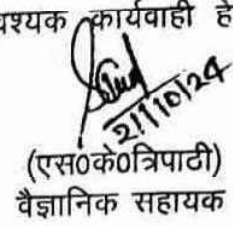 वश्यक कार्यवाही हे
21/10/24
(एस0के0त्रिपाठी)
वैज्ञानिक सहायक